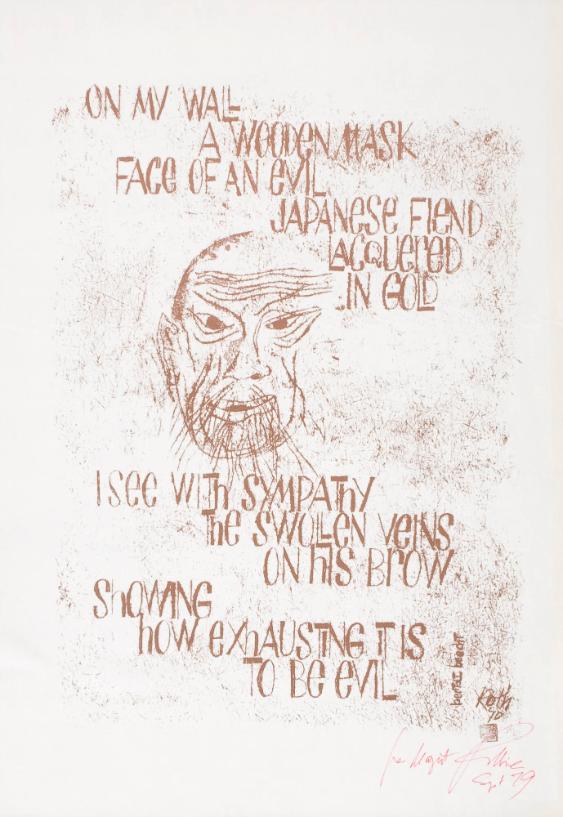 ON MY WALL
A WOODEN MASK
FACE OF AN EVIL
JAPANESE FIEND
LACQUERED
IN GOLD
I SEE WITH SYMPATHY
THE SWOLLEN VEINS
ON HIS BROW
SHOWING
HOW EXHAUSTING IT IS
TO BE EVIL
bertolt brecht
Koth
70
79